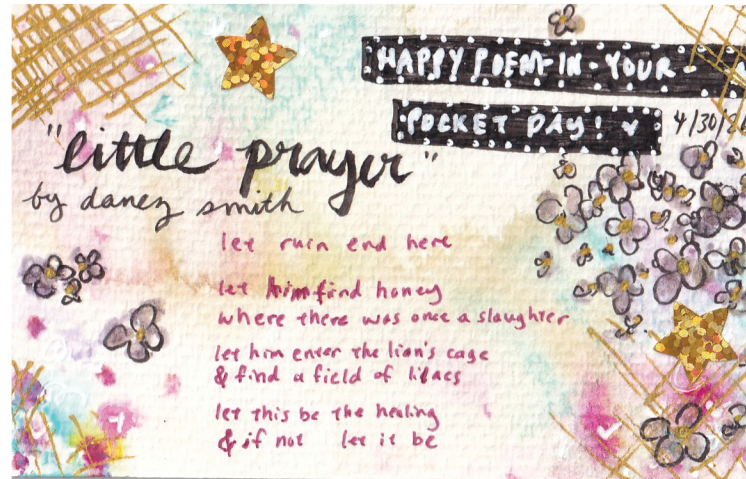 HAPPY POEM-IN-YOUR-
POCKET DAY!
4/30/20
"little prayer"
by danez smith
let ruin end here
let him find honey
where there was once a slaughter
let him enter the lion's cage
& find a field of lilacs
let this be the healing
& if not let it be